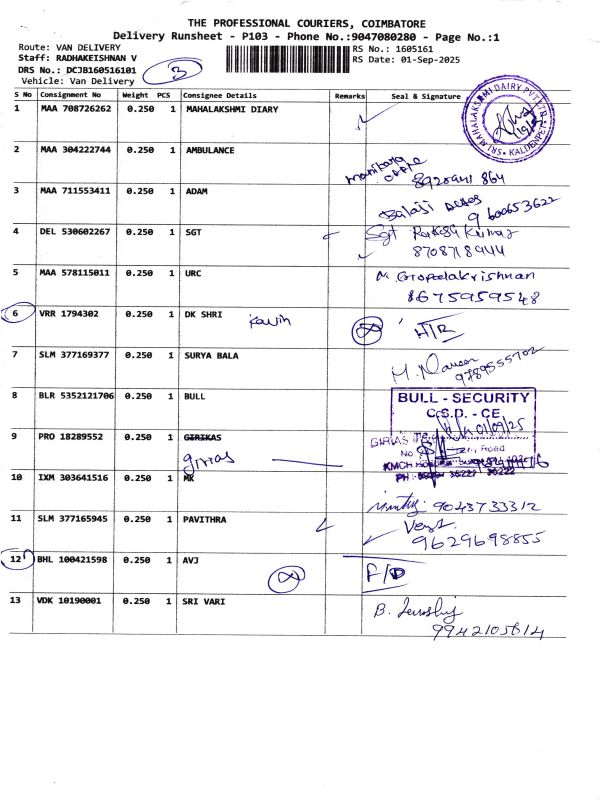 THE PROFESSIONAL COURIERS, COIMBATORE
Delivery Runsheet - P103 - Phone No.:9047080280 - Page No.:1
Route: VAN DELIVERY
RS No.: 1605161
Staff: RADHAKEISHNAN V
RS Date: 01-Sep-2025
DRS No.: DCJB160516101
3
Vehicle: Van Delivery
S No Consignment No Weight PCS Consignee Details Remarks Seal & Signature
1 MAA 708726262 0.250 1 MAHALAKSHMI DIARY
SRI MAHALAKSHMI DAIRY PVT LTD
2 MAA 304222744 0.250 1 AMBULANCE
8928941864
3 MAA 711553411 0.250 1 ADAM
Balaji
9600653622
4 DEL 530602267 0.250 1 SGT Sgt Rakesh Kumar
8708718944
5 MAA 578115011 0.250 1 URC M. Gopalakrishnan
8675959548
6 VRR 1794302 0.250 1 DK SHRI
7 SLM 377169377 0.250 1 SURYA BALA
9789555702
8 BLR 5352121706 0.250 1 BULL BULL - SECURITY
C.S.D. - CE
01/09/25
9 PRO 18289552 0.250 1 GIRIKAS
girias
GIRIAS
10 IXM 303641516 0.250 1 MK
9043733312
11 SLM 377165945 0.250 1 PAVITHRA
9629698855
12 BHL 100421598 0.250 1 AVJ
F/D
13 VDK 10190001 0.250 1 SRI VARI
9942105614